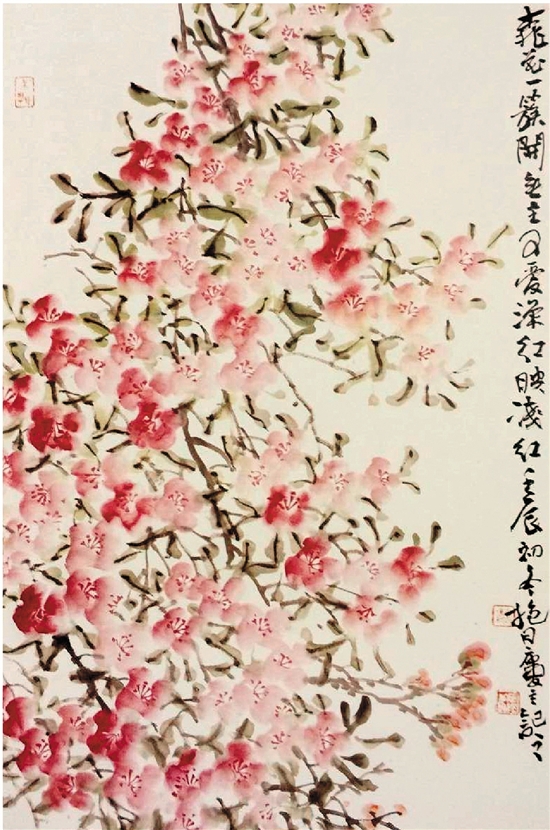 桃花一簇開無主可愛深紅映淺紅壬辰初冬抱日主記